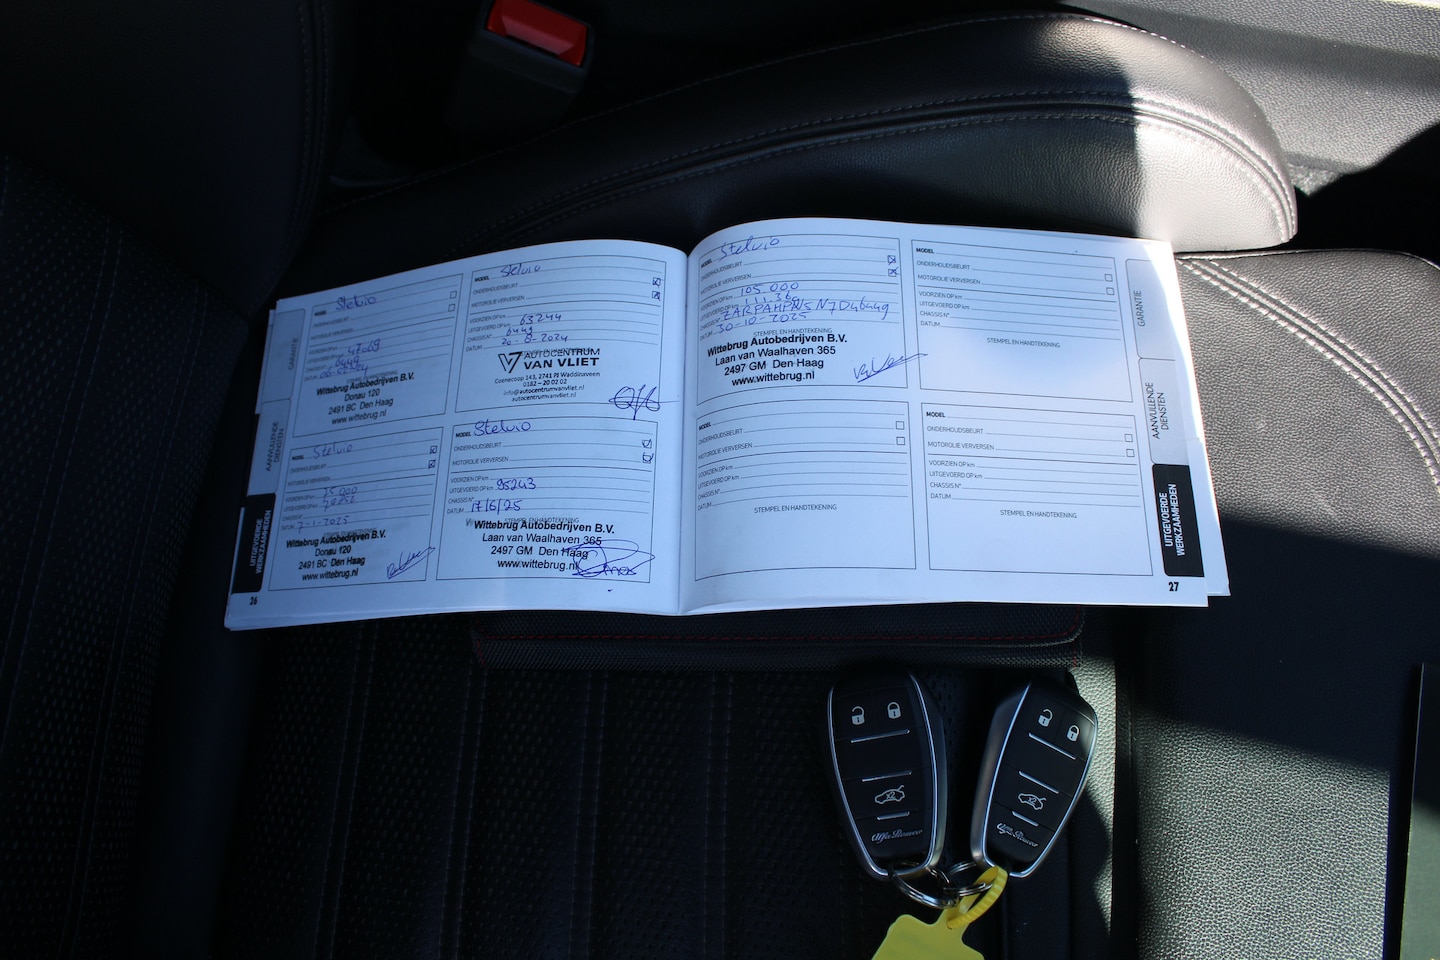 GARANTIE
AANVULLENDE
DIENSTEN
UITGEVOERDE
WERKZAAMHEDEN
26
MODEL Stelvio
ONDERHOUDSBEURT
MOTOROLIE VERVERSEN
VOORZIEN OP km
UITGEVOERD OP km
CHASSIS N°
DATUM
Wittebrug Autobedrijven B.V.
Donau 120
2491 BC Den Haag
www.wittebrug.nl
MODEL Stelvio
ONDERHOUDSBEURT
MOTOROLIE VERVERSEN
VOORZIEN OP km
UITGEVOERD OP km 63244
CHASSIS N°
DATUM 20-8-2024
AUTOCENTRUM
VAN VLIET
Coenecoop 143, 2741 PJ Waddinxveen
0182 - 20 02 02
info@autocentrumvanvliet.nl
autocentrumvanvliet.nl
MODEL Stelvio
ONDERHOUDSBEURT
MOTOROLIE VERVERSEN
VOORZIEN OP km 75.000
UITGEVOERD OP km
CHASSIS N°
DATUM 7-1-2025
Wittebrug Autobedrijven B.V.
Donau 120
2491 BC Den Haag
www.wittebrug.nl
MODEL Stelvio
ONDERHOUDSBEURT
MOTOROLIE VERVERSEN
VOORZIEN OP km
UITGEVOERD OP km 95243
CHASSIS N°
DATUM 17/6/25
STEMPEL EN HANDTEKENING
Wittebrug Autobedrijven B.V.
Laan van Waalhaven 365
2497 GM Den Haag
www.wittebrug.nl
MODEL Stelvio
ONDERHOUDSBEURT
MOTOROLIE VERVERSEN
VOORZIEN OP km 105.000
UITGEVOERD OP km
CHASSIS N°
DATUM 30-10-2025
STEMPEL EN HANDTEKENING
Wittebrug Autobedrijven B.V.
Laan van Waalhaven 365
2497 GM Den Haag
www.wittebrug.nl
MODEL
ONDERHOUDSBEURT
MOTOROLIE VERVERSEN
VOORZIEN OP km
UITGEVOERD OP km
CHASSIS N°
DATUM
STEMPEL EN HANDTEKENING
MODEL
ONDERHOUDSBEURT
MOTOROLIE VERVERSEN
VOORZIEN OP km
UITGEVOERD OP km
CHASSIS N°
DATUM
STEMPEL EN HANDTEKENING
MODEL
ONDERHOUDSBEURT
MOTOROLIE VERVERSEN
VOORZIEN OP km
UITGEVOERD OP km
CHASSIS N°
DATUM
STEMPEL EN HANDTEKENING
GARANTIE
AANVULLENDE
DIENSTEN
UITGEVOERDE
WERKZAAMHEDEN
27
X2
Alfa Romeo
X2
Alfa Romeo